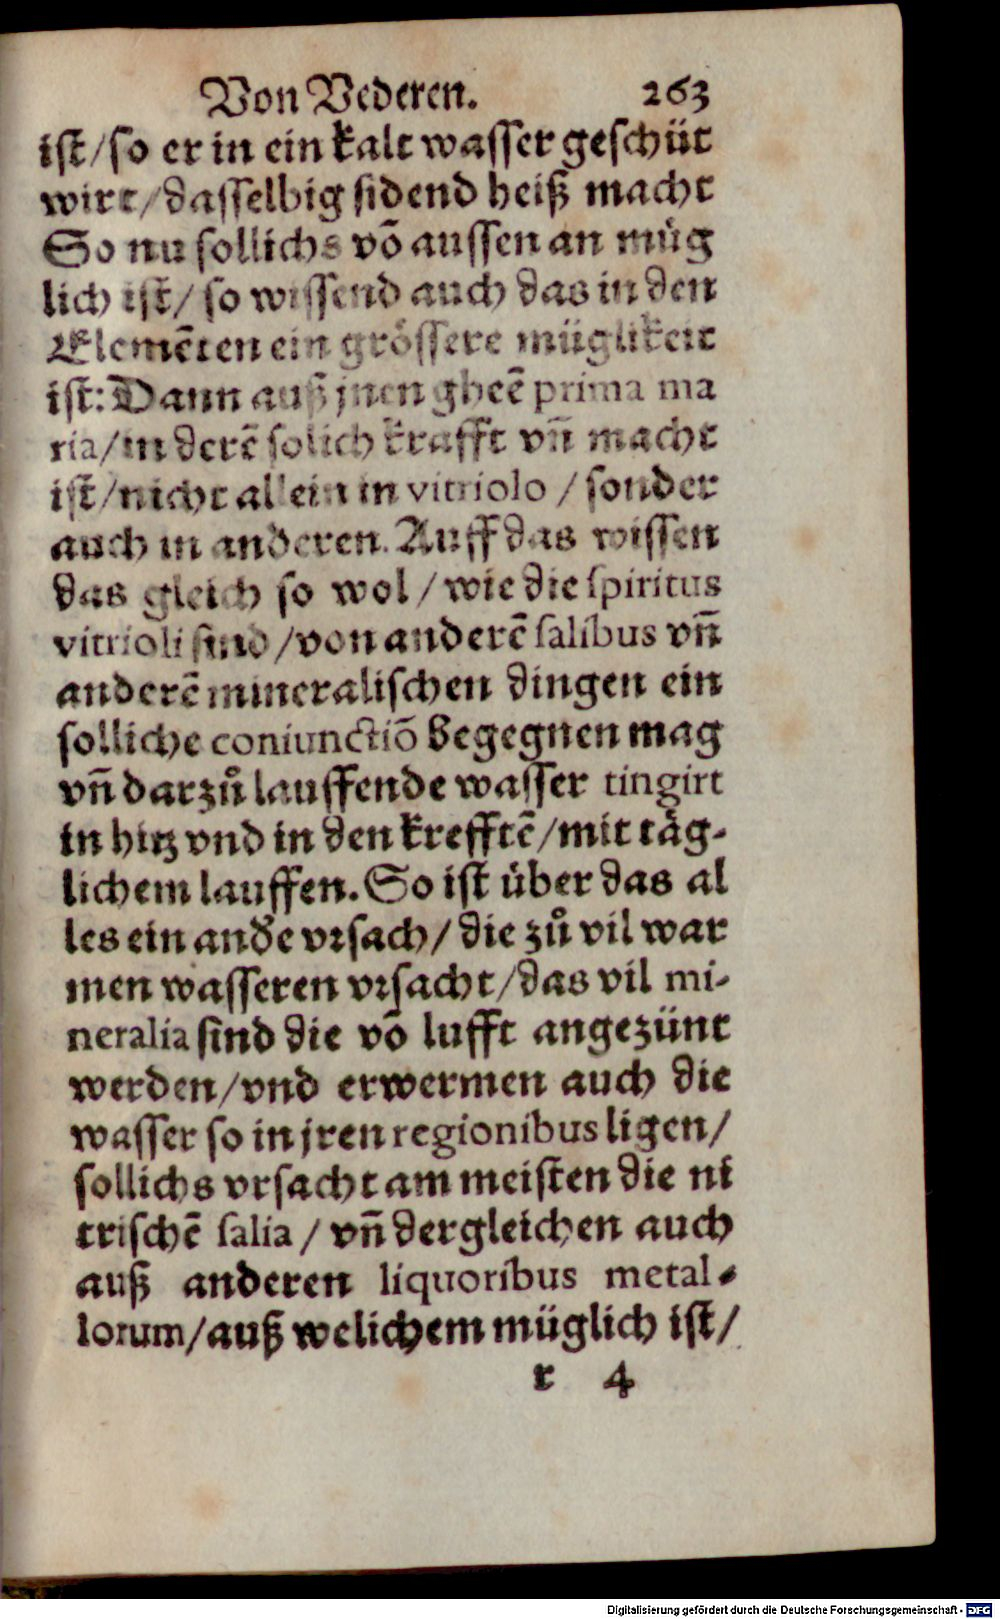 Von Bederen. 263
ist/so er in ein kalt wasser geschüt
wirt/dasselbig sidend heiß macht
So nu sollichs võ aussen an müg
lich ist/ so wissend auch das in den
Elemẽten ein grössere müglikeit
ist: Dann auß jnen gheẽ prima ma
ria/in derẽ solich krafft vñ macht
ist/nicht allein in vitriolo / sonder
auch in anderen. Auff das wissen
das gleich so wol / wie die spiritus
vitrioli sind /von anderẽ salibus vñ
anderẽ mineralischen dingen ein
solliche coniunctiõ begegnen mag
vñ darzů lauffende wasser tingirt
in hitz vnd in den krefftẽ/mit täg-
lichem lauffen. So ist über das al
les ein ande vrsach/ die zů vil war
men wasseren vrsacht/das vil mi-
neralia sind die võ lufft angezünt
werden/vnd erwermen auch die
wasser so in jren regionibus ligen/
sollichs vrsacht am meisten die ni
trischẽ salia / vñ dergleichen auch
auß anderen liquoribus metal-
lorum/auß welichem müglich ist/
r 4
Digitalisierung gefördert durch die Deutsche Forschungsgemeinschaft - DFG